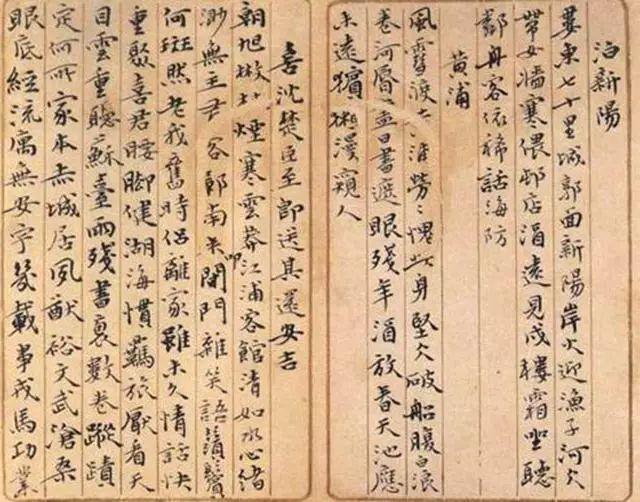 泊新陽
婁東七十里城郭面新陽岸火迎漁子河仌
帶女牆寒偎邨店酒遠見戍樓霜坐聽
鄰舟客依稀話海防
黄浦
風雪渡浦勞々愧此身堅仌破船腹白浪
卷河脣盡日書遮眼殘年酒放春天池應
未遠獱獺漫窺人
喜沈楚臣至即送其還安吉
朝旭散林煙寒雲莽江浦客館清如水心緒
渺無主君鄣南来叩門雜笑語鬚鬢
何斑然老我舊時侶離家雖未久情話快
重聚喜君腰脚健湖海慣羈旅厭看天
目雲重聽蘇臺雨殘書裹數卷蹤蹟
定何所家本赤城居夙猷裕文武滄桑
眼底經流寓無安宇幾載事戎馬功業